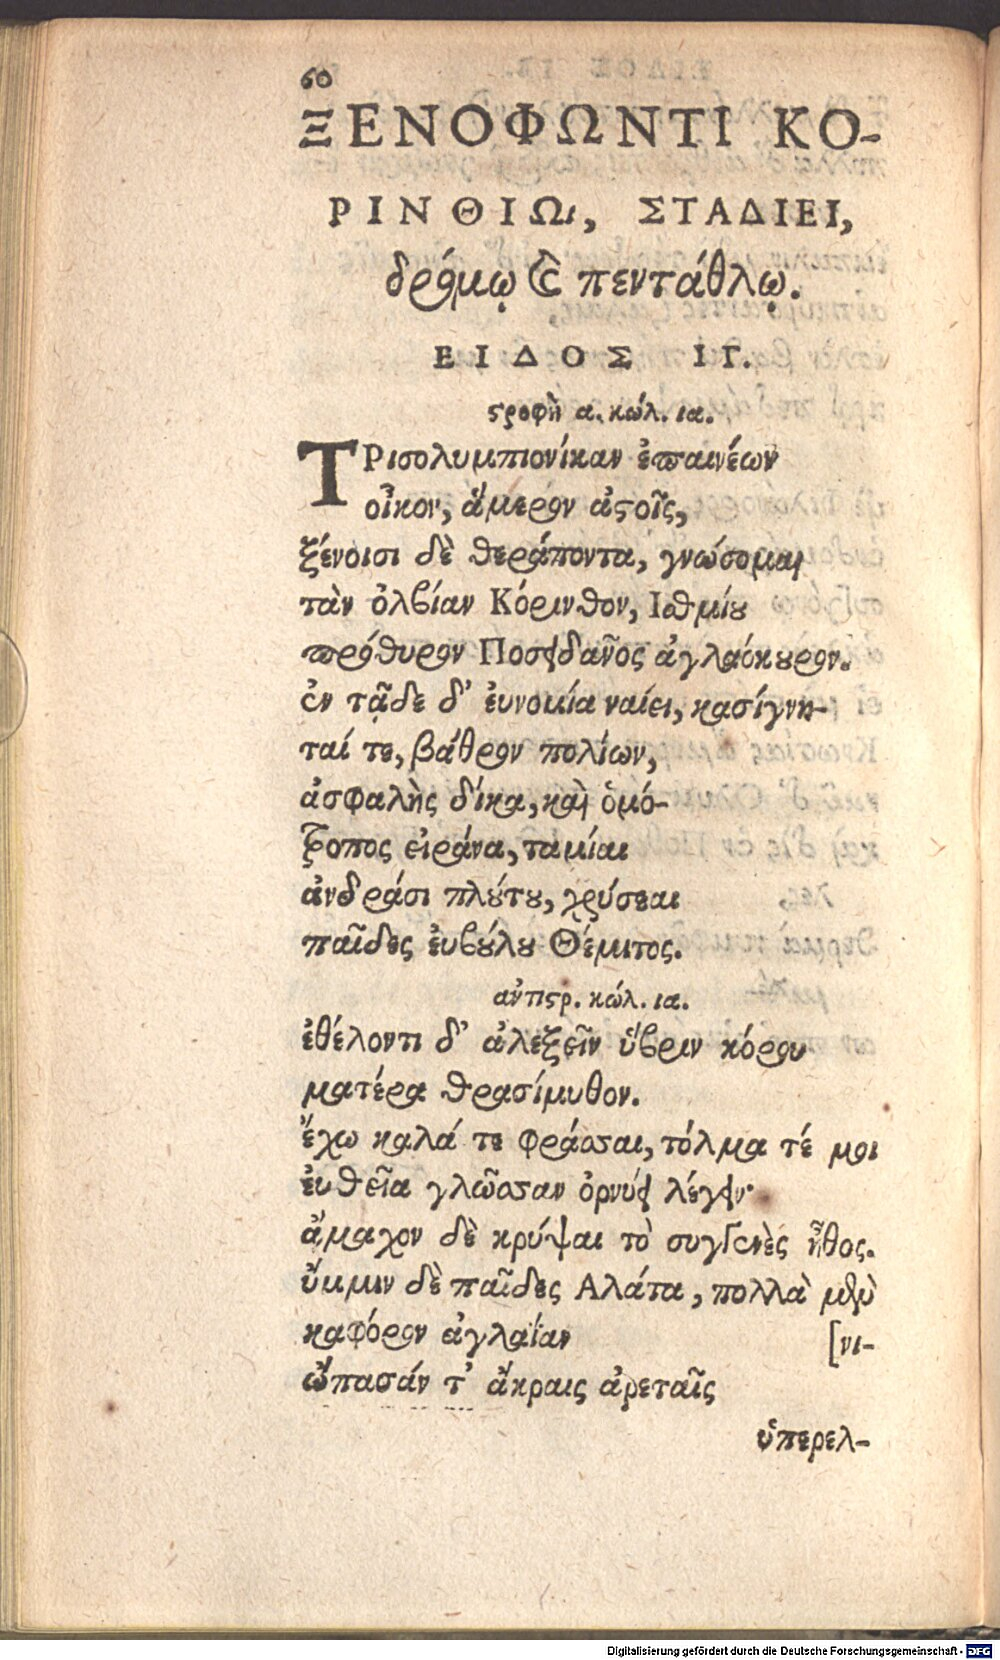 60
ΞΕΝΟΦΩΝΤΙ ΚΟ-
ΡΙΝΘΙΩι, ΣΤΑΔΙΕΙ,
δρόμῳ ϗ πεντάθλῳ.
ΕΙΔΟΣ ΙΓ.
ϛροφὴ α. κώλ. ια.
ΤΡισολυμπιονίκαν ἐπαινέων
οἶκον, ἅμερον ἀϛοῖς,
ξένοισι δὲ θεράποντα, γνώσομαι
τὰν ὀλβίαν Κόρινθον, Ιϑμίȣ
πρόθυρον Ποσειδᾶνος ἀγλαόκȣρον.
ἐν τᾷδε δ' ἐυνομία ναίει, κασίγνη-
ταί τε, βάθρον πολίων,
ἀσφαλὴς δίκα, καὶ ὁμό-
τροπος εἰράνα, ταμίαι
ἀνδράσι πλȣ́τȣ, χρύσεαι
παῖδες ἐυβȣ́λȣ Θέμιτος.
ἀντιϛρ. κώλ. ια.
ἐθέλοντι δ' ἀλεξεῖν ὕβριν κόρου
ματέρα θρασίμυθον.
ἔχω καλά τε φράσσαι, τόλμα τέ μοι
ἐυθεῖα γλῶσσαν ὀρνύει λέγειν·
ἄμαχον δὲ κρύψαι τὸ συγγενὲς ἦθος.
ὔμμιν δὲ παῖδες Αλάτα, πολλὰ μὲν
καφόρον ἀγλαΐαν [νι-
ὤπασάν τ' ἄκραις ἀρεταῖς
ὑπερελ-
Digitalisierung gefördert durch die Deutsche Forschungsgemeinschaft - DFG